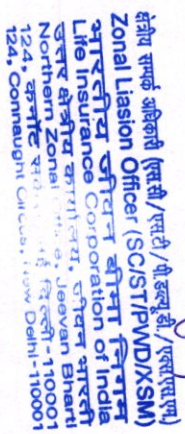 क्षेत्रीय सम्पर्क अधिकारी (एस.सी/एस.टी/पी.डब्ल्यू.डी/एक्स.एस.एम)
Zonal Liasion Officer (SC/ST/PWD/XSM)
भारतीय जीवन बीमा निगम
Life Insurance Corporation of India
उत्तर क्षेत्रीय कार्यालय, जीवन भारती
Northern Zonal Jeevan Bharti
124, कनॉट दिल्ली-110001
124, Connaught Circus, New Delhi-110001